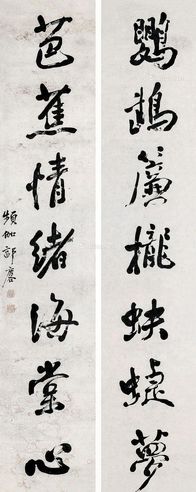 鸚鵡簾櫳蛱蜨夢
芭蕉情緒海棠心
頻伽郭麐